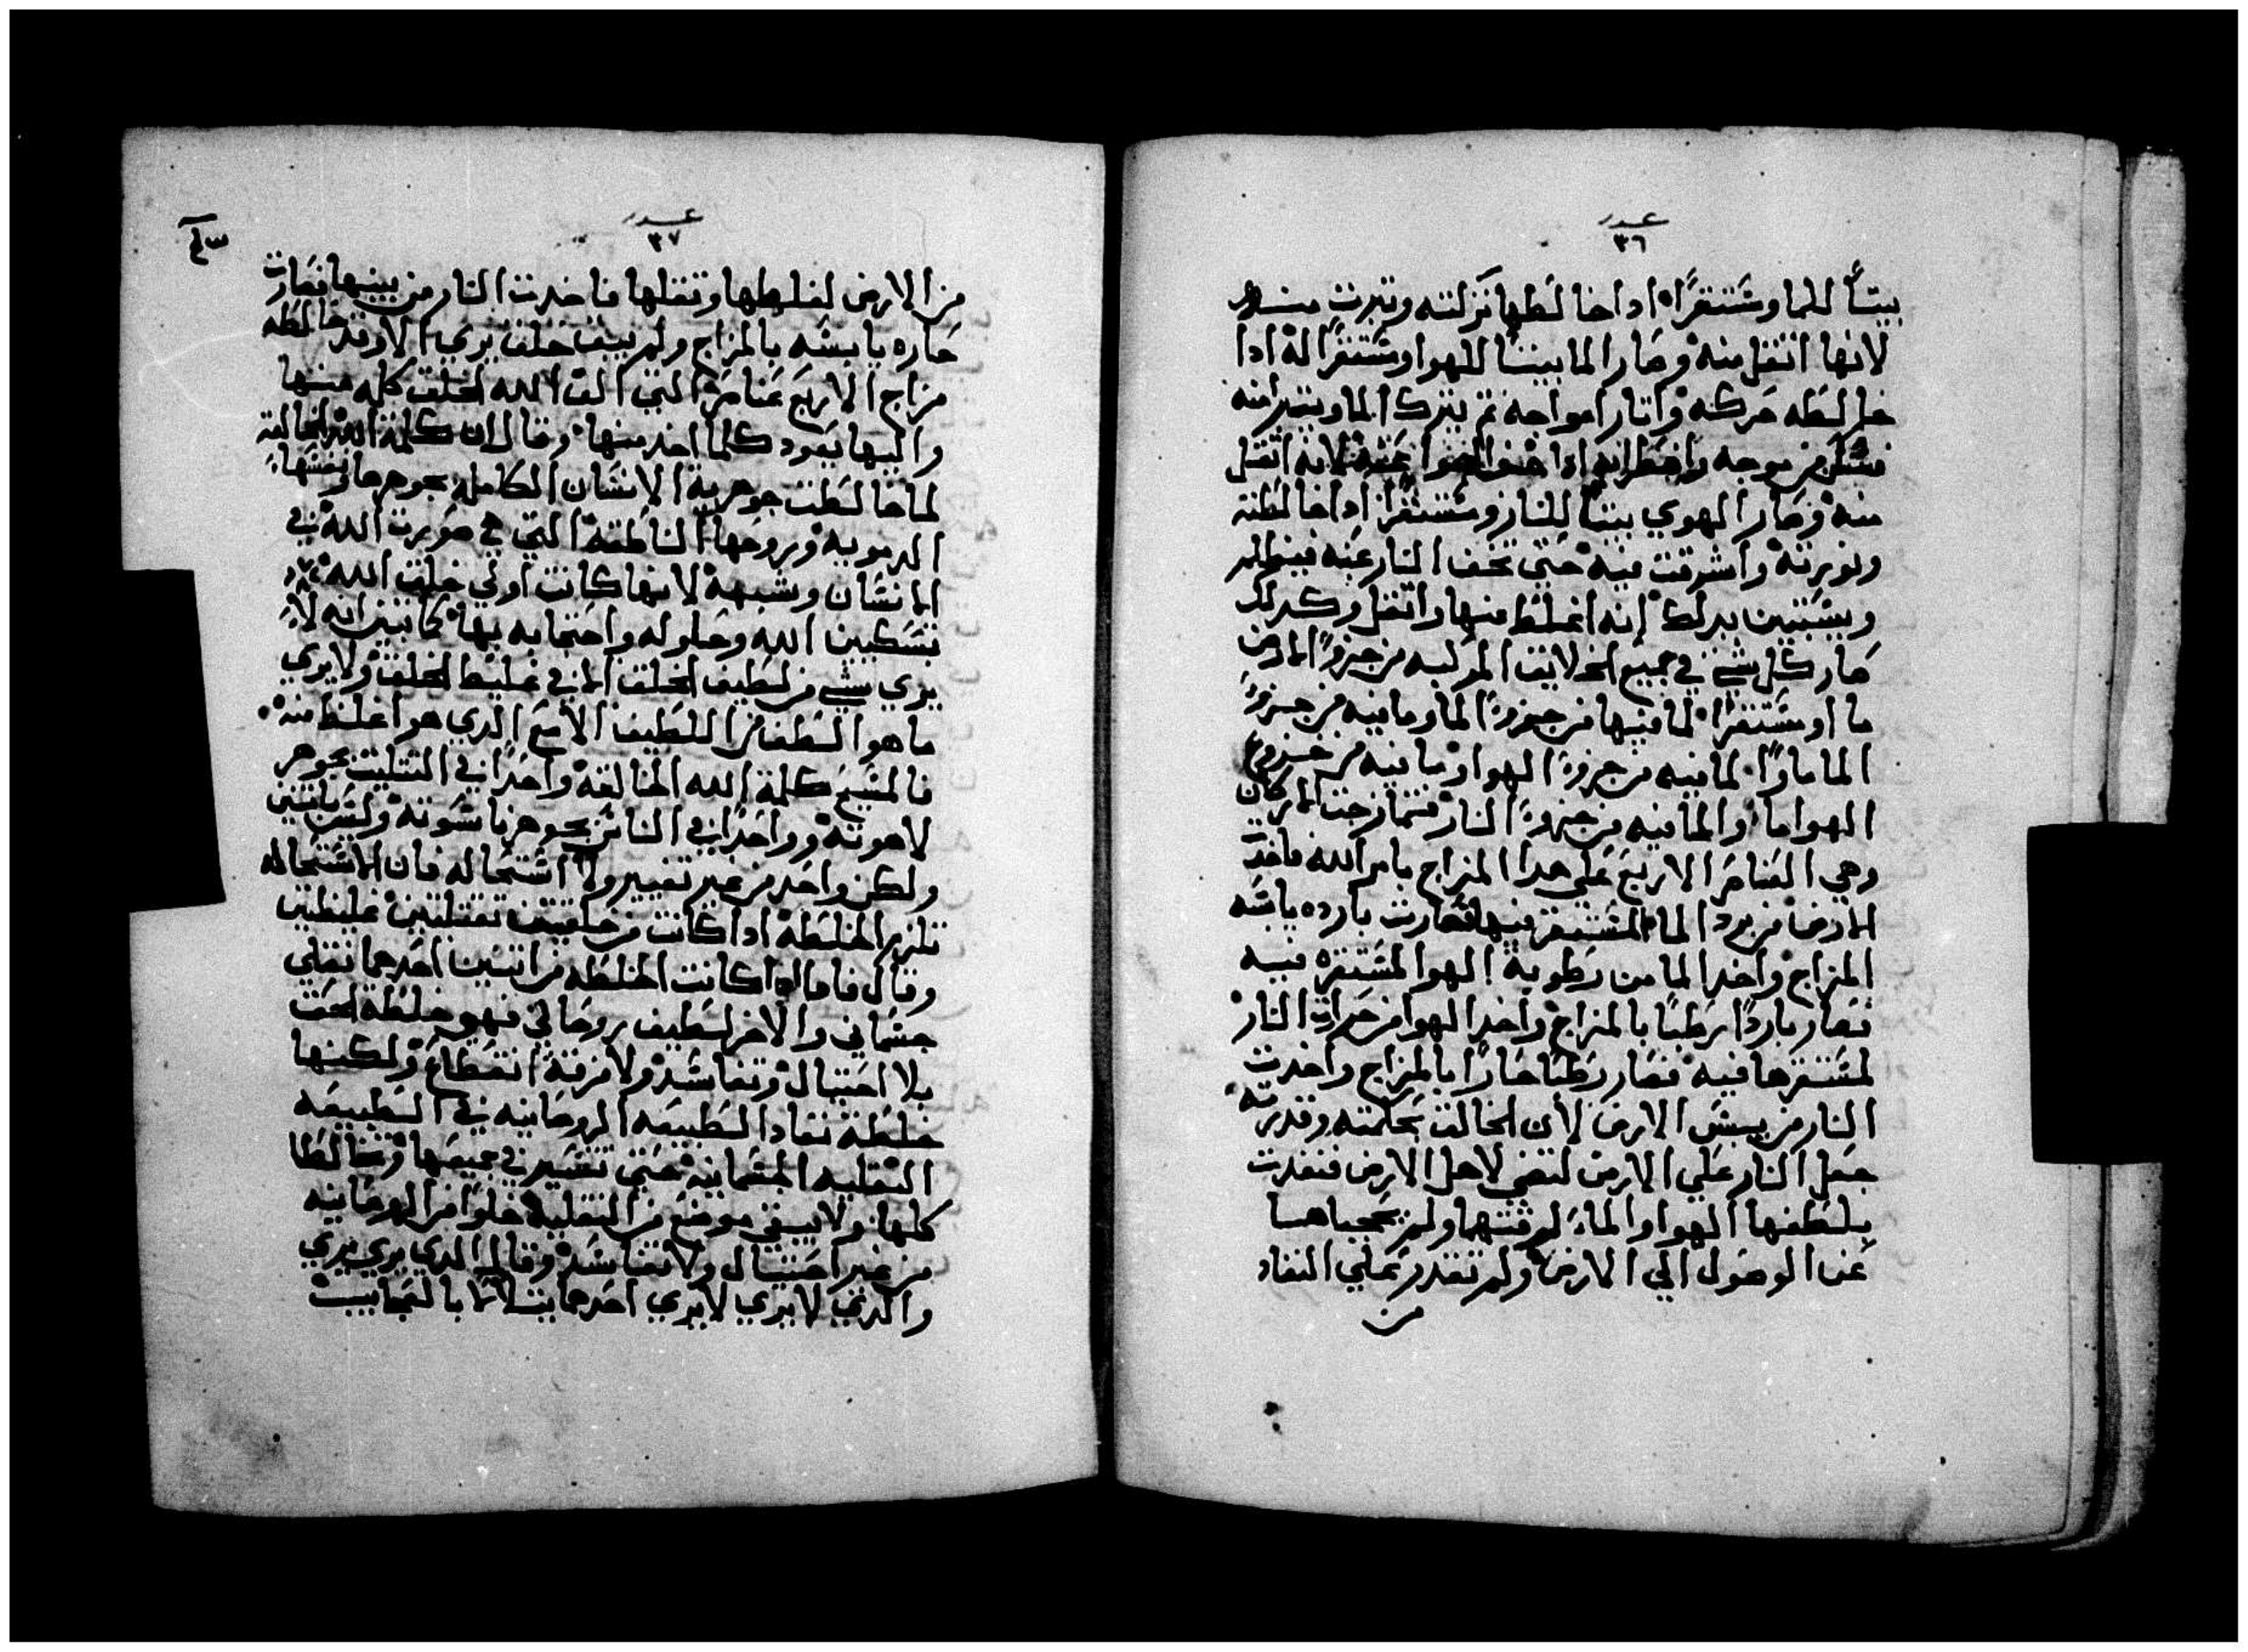 عدد
٣٦
بيتاً للما ومستقراً اذا خالطها نزلته وتبرت منه
لانها اتقل منه وصار الما بيتاً للهوا ومستقراً له اذا
خالطه حركه واتار امواجه تم يترك الما ويتبرا منه
فيسكن من موجه واضطرابه اذا خف الهوا عنه لانه اتقل
منه وصار الهوي بيتاً للنار ومستقراً اذا خالطته
ونورته واشرقت فيه حتي تخف النار عنه فيظلم
ويستبين بدلك انه اغلظ منها واتقل وكدلك
صار كل شي في جميع الخلايق المركبه من جزوً الارض
ماوا ومستقراً لما فيها من جزوً الما وما فيه من جزوً
الما ماواً لما فيه من جزوً الهوا وما فيه من جزو
الهوا ماوا لما فيه من جزوً النار فتمازجت الاركان
وهي العناصر الاربع علي هدا المزاج بامر الله فاخدت
الارض من برد الما المستقر فيها فصارت بارده يابسه
المزاج واخد الما من رطوبة الهوا المستقره فيه
فصار بارداً رطباً بالمزاج واخد الهوا من حرارت النار
لمستقرها فيه فصار رطباً حاراً بالمزاج واخدت
النار من يبس الارض لان الخالق بحكمته وقدرته
جعل النار علي الارض لتضي لاهل الارض فنفدت
بلطفها الهوا والماء لرقتها ولم يحجباها
عن الوصول الي الارض ولم تقدر علي النفاد
من
عدد
٣٧
من الارض لغلظها وتقلها فاخدت النار من يبسها فصارت
حاره يابسه بالمزاج ولم يبق خلق يري الا وقد خالطه
مزاج الاربع عناصر التي الف الله الخلق كله منها
واليها يعود كلما اخد منها وقال ان كلمة الله الخالقة
لما خالطت جوهرية الانسان الكامله بجوهرها ونفسها
الدمويه وبروحها الناطقة التي هي صورت الله في
الانسان وشبهه لانها كانت اولي خلق الله
تسكين الله وحلوله واحتجابه بها كما تبين انه لا
يري شي من لطيف الخلق الا في غليظ الخلق ولا يري
ما هو الطف من اللطيف الا مع الدي هو اغلظ منه
فالمسيح كلمة الله الخالقة واحداً في التتليت بجوهر
لاهوته وواحداً في الناس بجوهر ناسوته وليس باتنين
ولكن واحد من غير تغيير ولا استحاله فان الاستحاله
تلزم الخلطه ادا كانت من خلقتين تقيلتين غليظتين
وقال فاما ادا كانت الخلطه من اتنين احدهما تقلي
جسماني والاخر لطيف روحاني فهو خلطه الحق
بلا احتيال وتفاسد ولا فرقة انقطاع ولكنها
خلطة نفاد الطبيعه الروحانيه في الطبيعه
التقليه الجسمانيه حتي تنتشر في جميعها وتخالطا
كلها ولا يبقي موضع من التقليه خلواً من الروحانيه
من غير احتيال ولا تفاسد وقال الدي يري يري
والدي لا يري لا يري احدهما يتلالا بالعجايب